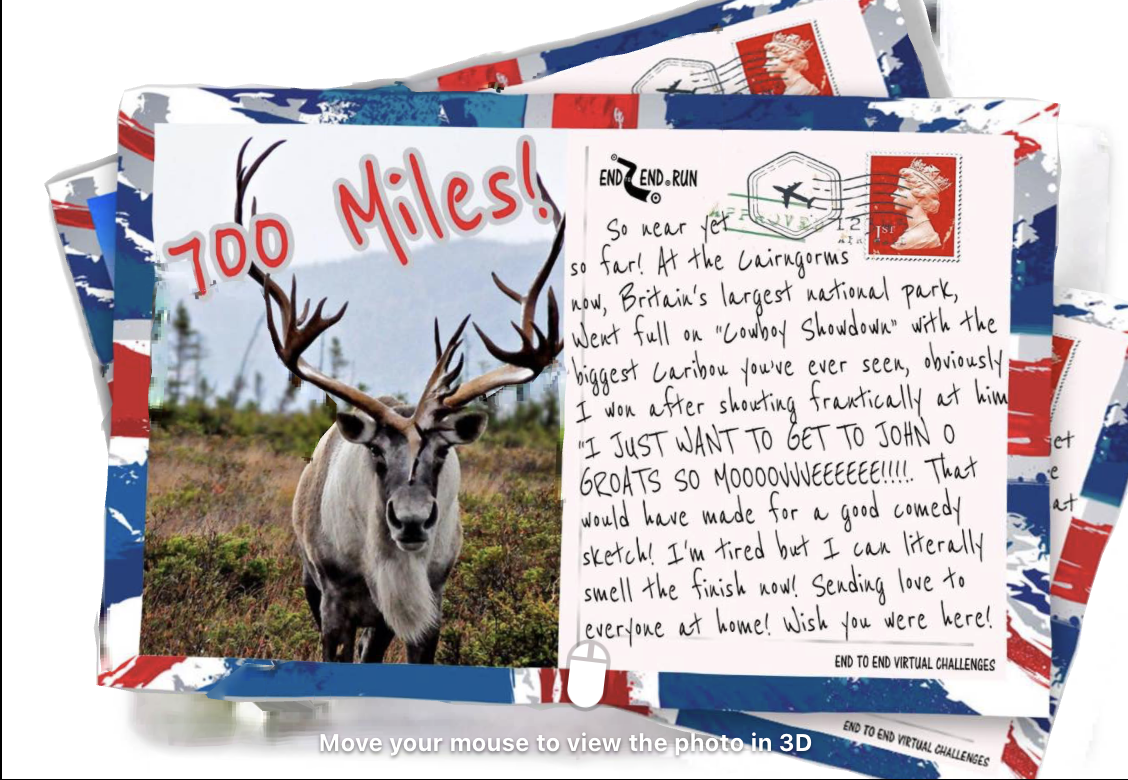 700 Miles!
END 2 END RUN
1ST
So near yet
so far! At the Cairngorms
now, Britain's largest national park,
Went full on "Cowboy Showdown" with the
biggest Caribou you've ever seen, obviously
I won after shouting frantically at him
"I JUST WANT TO GET TO JOHN O
GROATS SO MOOOOVVVEEEEEE!!!!. That
would have made for a good comedy
sketch! I'm tired but I can literally
smell the finish now! Sending love to
everyone at home! Wish you were here!
END TO END VIRTUAL CHALLENGES
et
e
at
END TO END VIRTUAL CHALLENGES
Move your mouse to view the photo in 3D